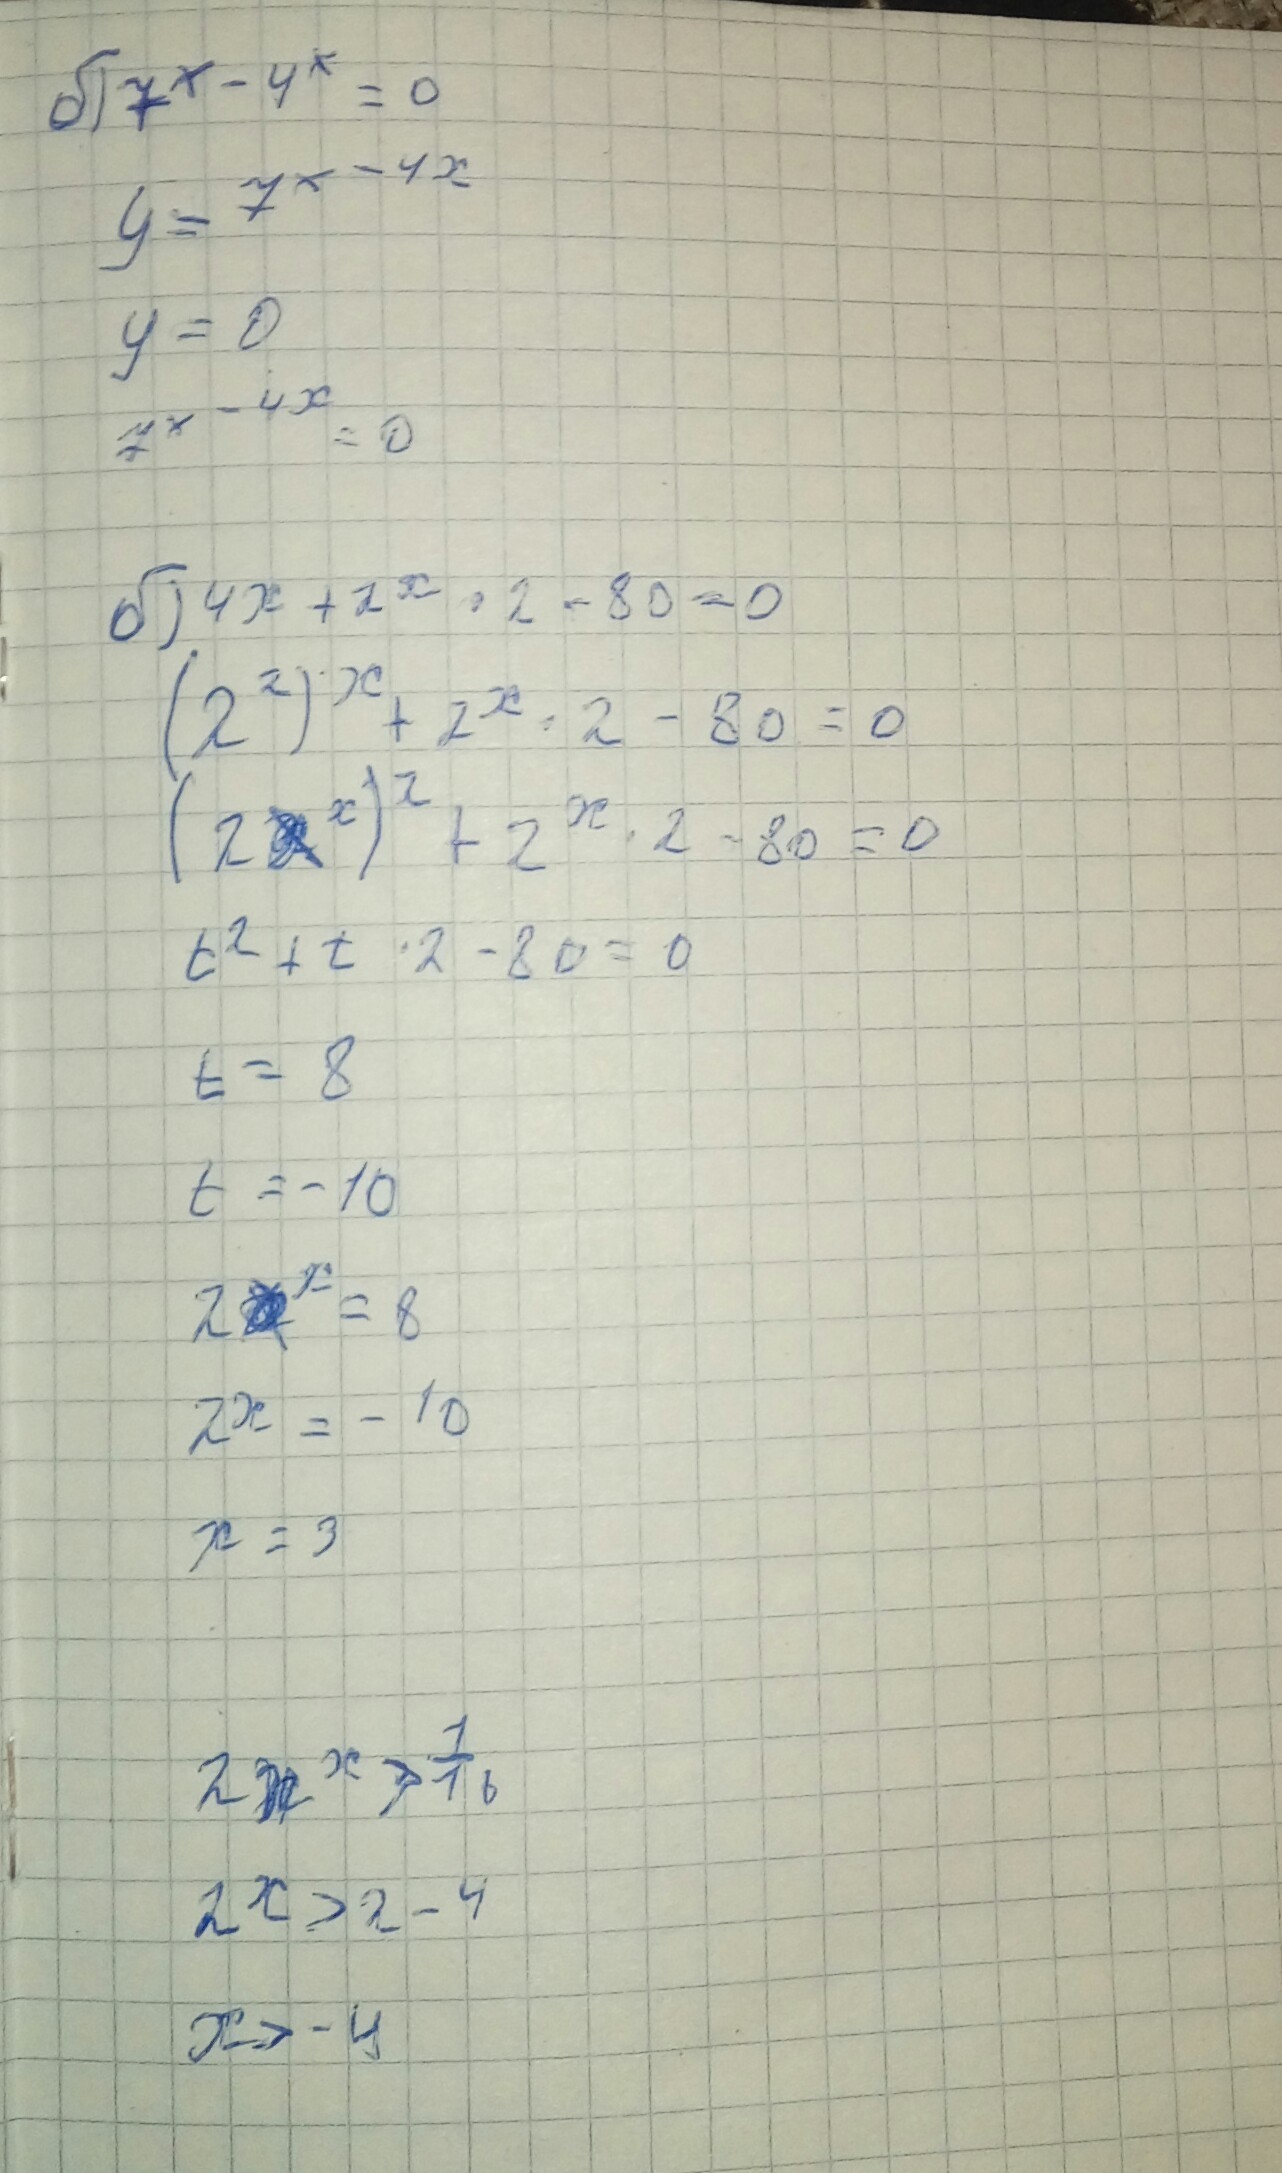 б) 7^x - 4^x = 0
y = 7^x - 4x
y = 0
7^x - 4x = 0
б) 4x + 2^x · 2 - 80 = 0
(2^2)^x + 2^x · 2 - 80 = 0
(2^x)^2 + 2^x · 2 - 80 = 0
t^2 + t · 2 - 80 = 0
t = 8
t = -10
2^x = 8
2^x = -10
x = 3
2^x > 1/16
2^x > 2 - 4
x > -4